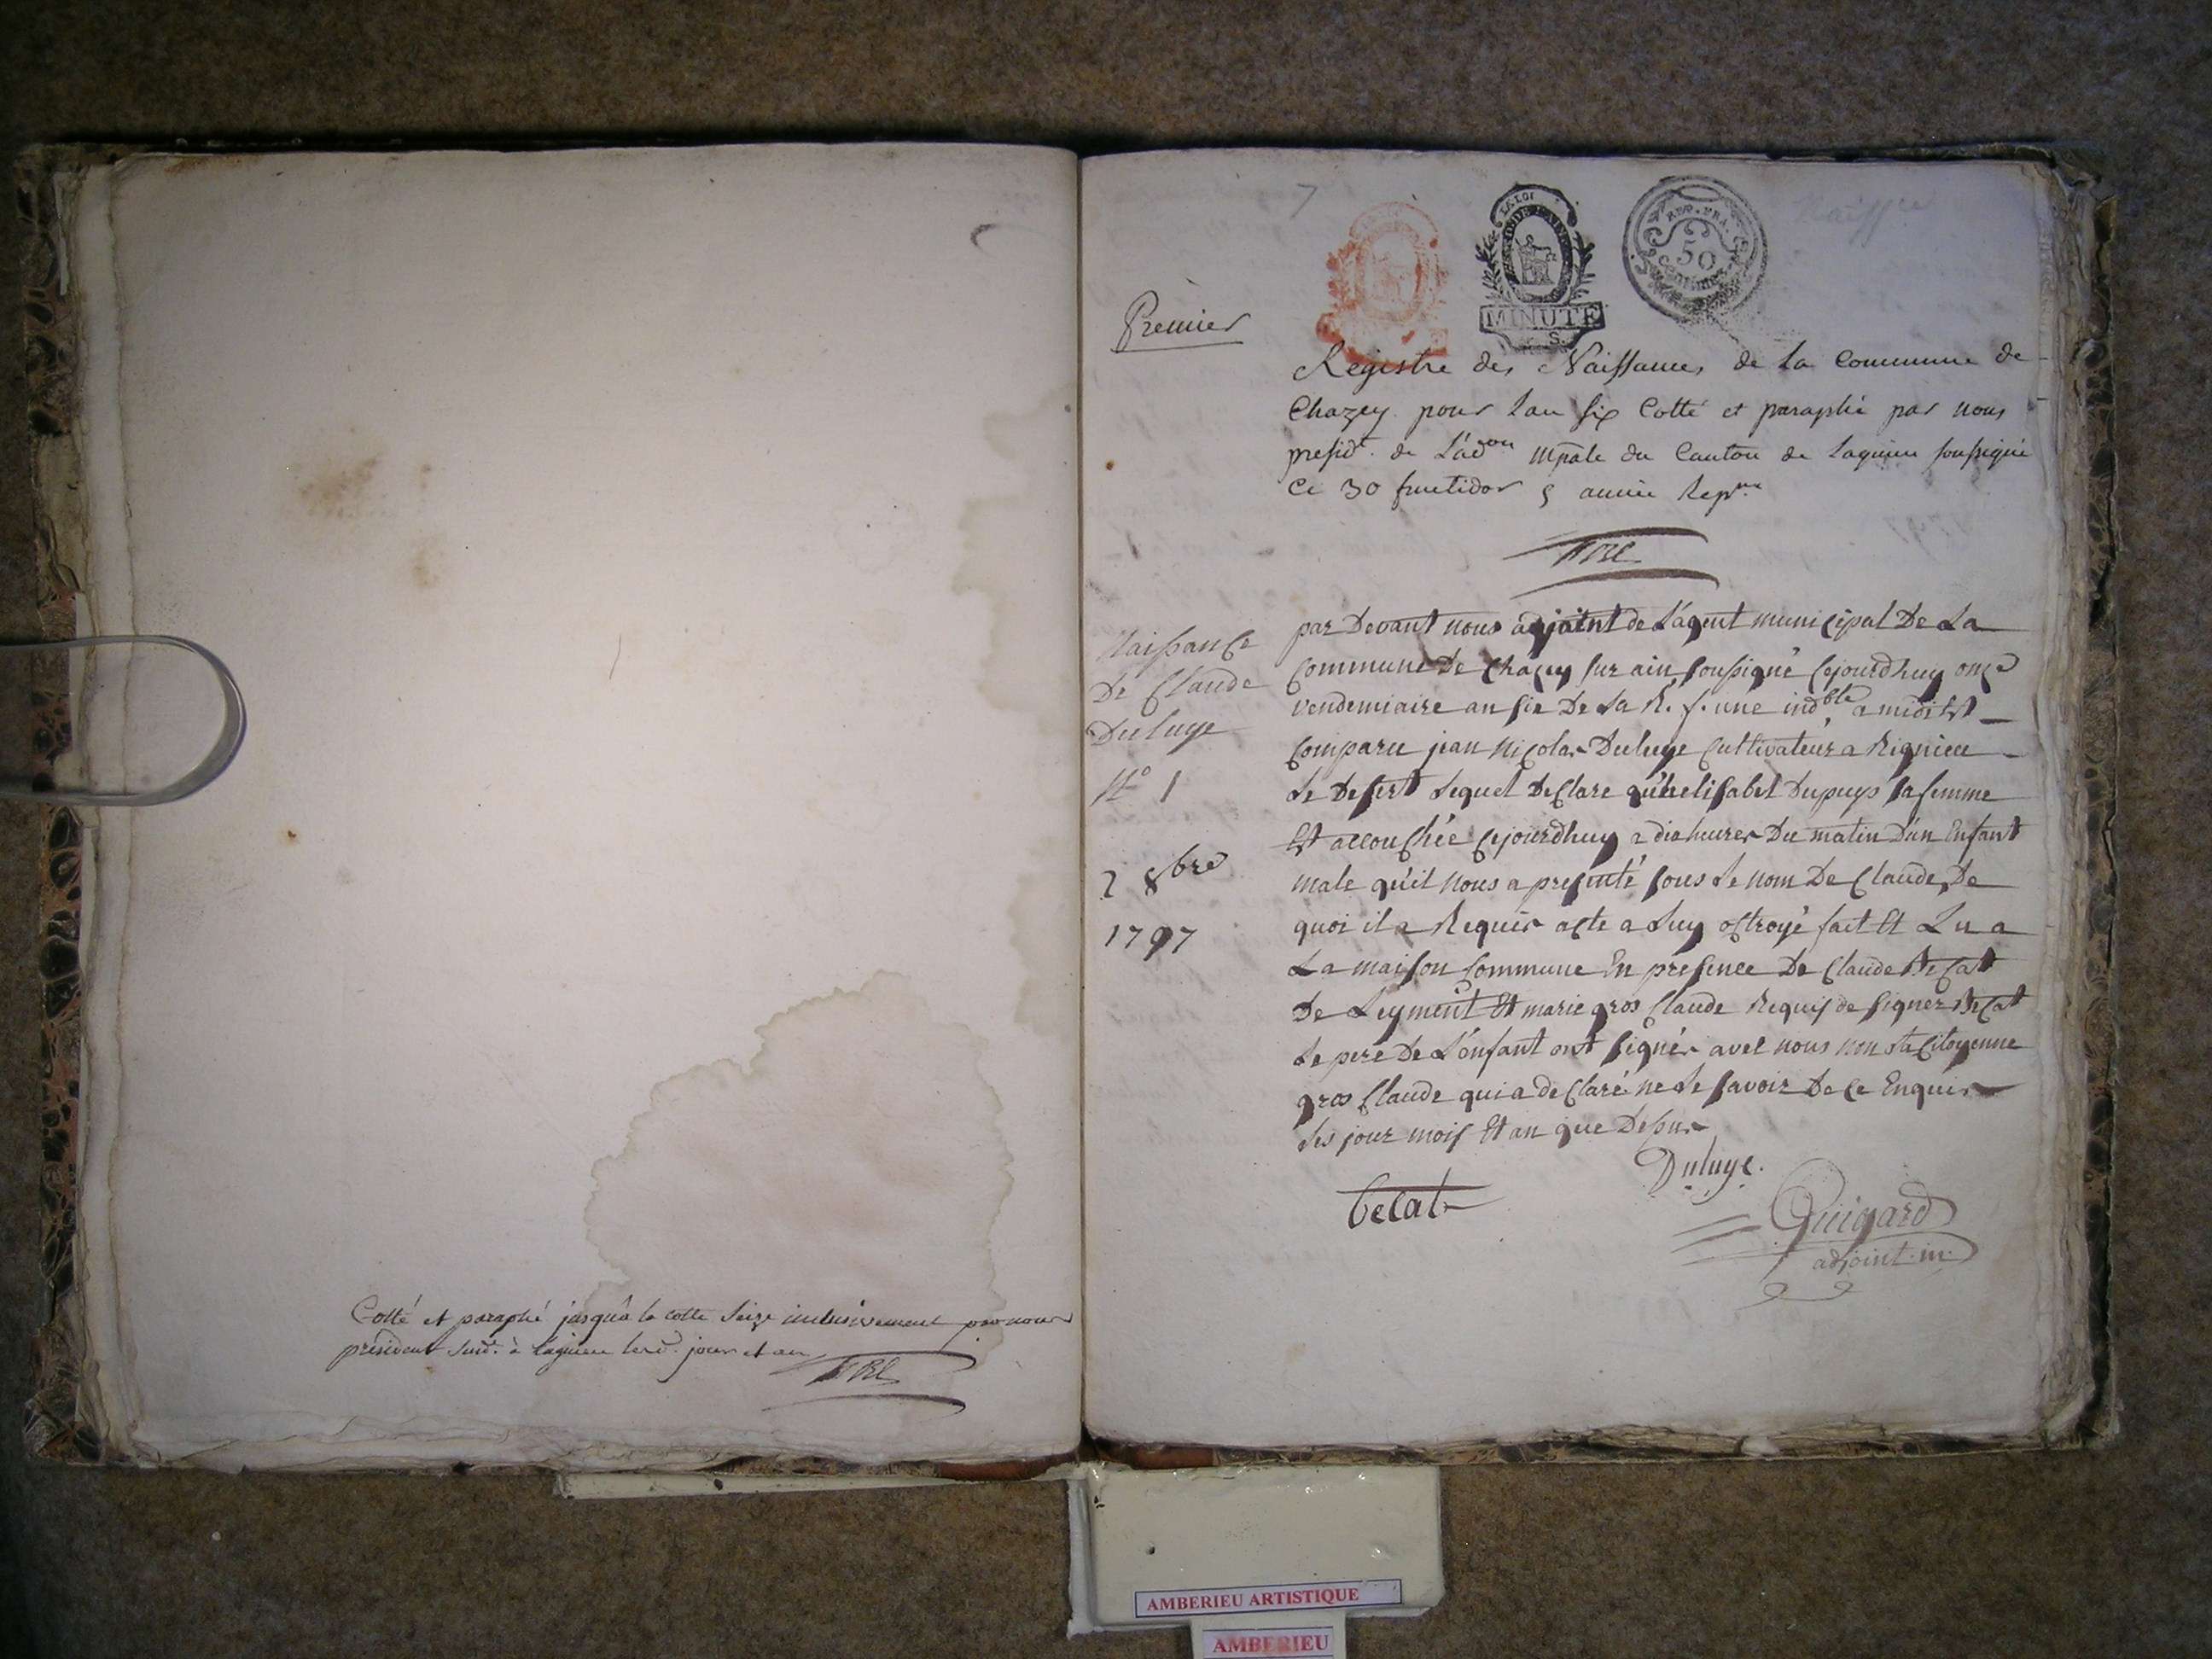 Cotté et paraphé jusqu'à la cotte seize inclusivement par nous
président susd. à Lagnieu lesd. jour et an
7
LA LOI
MINUTE
S.
REP. FRA.
50
CENTIMES
Premier
Registre des Naissances de la Commune de
Chazey pour l'an six Cotté et paraphé par nous
presidt. de L'adon mpale du Canton de Lagnieu soussigné
Ce 30 fructidor 5 année Repne
Naissance
De Claude
Duluye
No 1
2 8bre
1797
par Devant nous adjoint de L'agent municipal De La
Commune De Chazey sur ain soussigné Cejourdhuy onze
vendemiaire an six De La R. f. une indble a midi Est
Comparu jean Nicolas Duluye Cultivateur a Rignieu
Le Desert Lequel DeClare qu'helisabet Dupuys sa femme
Est accouchée Cejourdhuy a dix heures Du matin D'un Enfant
male qu'il nous a presenté sous Le nom De Claude, De
quoi il a Requis acte a Luy octroyé fait Et Lu a
La maison Commune En presence De Claude Becat
De Leyment Et marie gros Claude Requis de signer Becat
Le pere De L'enfant ont signés avec nous non La Citoyenne
gros Claude qui a de Claré ne Le savoir De Ce Enquise
Les jour mois Et an que Dessus
Duluye.
becat
Guigard
adjoint. m.
AMBERIEU ARTISTIQUE
AMBERIEU